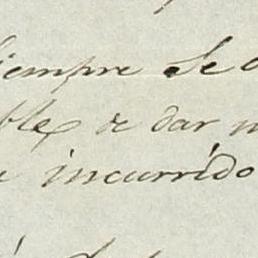 siempre se
ble de dar
incurrido